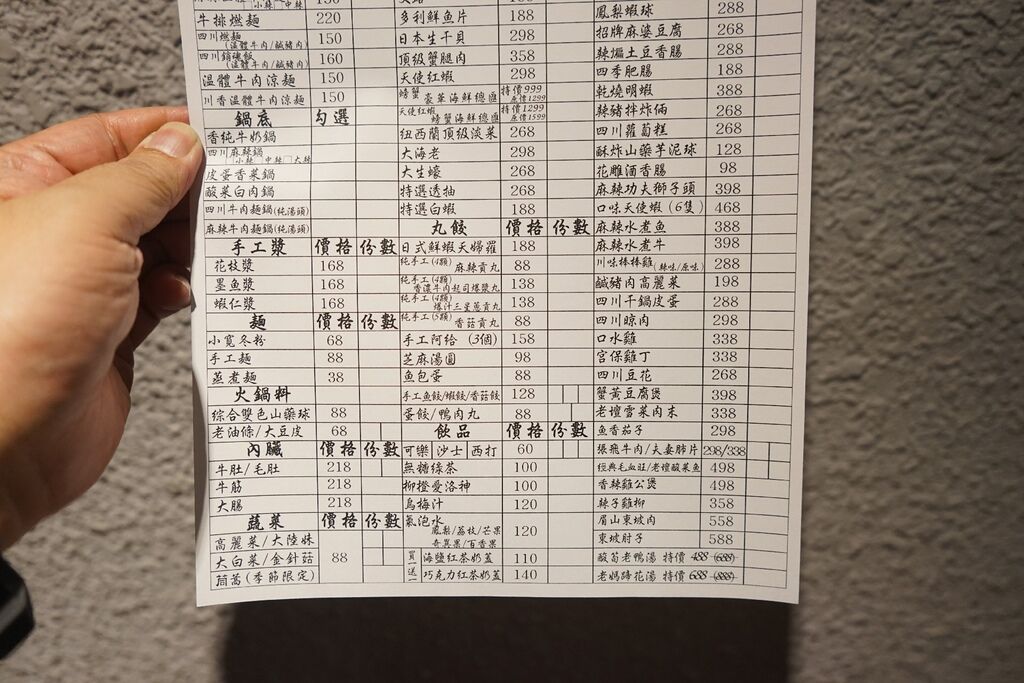 牛排燃麵 220
四川燃麵(溫體牛肉/鹹豬肉) 150
四川銷魂飯(溫體牛肉/鹹豬肉) 160
溫體牛肉涼麵 150
川香溫體牛肉涼麵 150
鍋底 勾選
香純牛奶鍋
四川麻辣鍋 □小辣 □中辣 □大辣
皮蛋香菜鍋
酸菜白肉鍋
四川牛肉麵鍋(純湯頭)
麻辣牛肉麵鍋(純湯頭)
手工漿 價格 份數
花枝漿 168
墨魚漿 168
蝦仁漿 168
麵 價格 份數
小寬冬粉 68
手工麵 88
蒸煮麵 38
火鍋料
綜合雙色山藥球 88
老油條/大豆皮 68
內臟 價格 份數
牛肚/毛肚 218
牛筋 218
大腸 218
蔬菜 價格 份數
高麗菜/大陸妹
大白菜/金針菇 88
茼蒿(季節限定)
多利鮮魚片 188
日本生干貝 298
頂級蟹腿肉 358
天使紅蝦 298
螃蟹 豪華海鮮總匯 特價999 原價1299
天使紅蝦 螃蟹海鮮總匯 特價1299 原價1599
紐西蘭頂級淡菜 268
大海老 298
大生蠔 268
特選透抽 268
特選白蝦 188
丸餃 價格 份數
日式鮮蝦天婦羅 188
純手工(4顆) 麻辣貢丸 88
純手工(4顆) 香濃牛肉起司爆漿丸 138
純手工(4顆) 爆汁三星蔥貢丸 138
純手工(5顆) 香菇貢丸 88
手工阿給 (3個) 158
芝麻湯圓 98
魚包蛋 88
手工魚餃/蝦餃/香菇餃 128
蛋餃/鴨肉丸 88
飲品 價格 份數
可樂 沙士 西打 60
無糖綠茶 100
柳橙愛洛神 100
烏梅汁 120
氣泡水 鳳梨/荔枝/芒果 奇異果/百香果 120
買一送一 海鹽紅茶奶蓋 110
巧克力紅茶奶蓋 140
鳳梨蝦球 288
招牌麻婆豆腐 268
辣煸土豆香腸 288
四季肥腸 188
乾燒明蝦 388
辣豬拌炸倆 268
四川蘿蔔糕 268
酥炸山藥芋泥球 128
花雕酒香腸 98
麻辣功夫獅子頭 398
口味天使蝦 (6隻) 468
麻辣水煮魚 388
麻辣水煮牛 398
川味棒棒雞(辣味/原味) 288
鹹豬肉高麗菜 198
四川干鍋皮蛋 288
四川晾肉 298
口水雞 338
宮保雞丁 338
四川豆花 268
蟹黃豆腐煲 398
老壇雪菜肉末 338
魚香茄子 298
張飛牛肉/夫妻肺片 298/338
經典毛血旺/老壇酸菜魚 498
香辣雞公煲 498
辣子雞柳 358
眉山東坡肉 558
東坡肘子 588
酸蘿老鴨湯 特價 488 (688)
老媽蹄花湯 特價 688 (888)